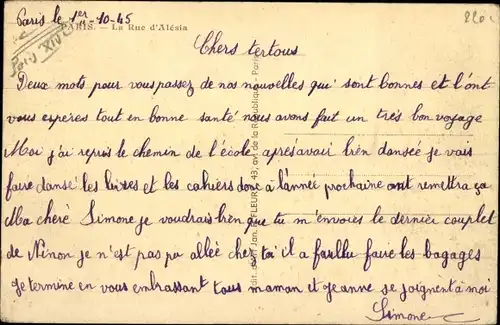 Paris le 1er-10-45
PARIS. - La Rue d'Alésia
Paris XIV
Chers tertous
Deux mots pour vous passez de nos nouvelles qui sont bonnes et l'ont
vous esperes tout en bonne santé nous avons fait un très bon voyage
Moi j'ai repris le chemin de l'école après avoir bien dansée je vais
faire dansé les livres et les cahiers donc à l'année prochaine ont remettra ça
Ma chèré Simone je voudrais bien que tu m'envoies le dernier couplet
de Ninon je n'est pas pu allée chez toi il a faullu faire les bagages
Je termine en vous embrassant tous maman et Jeanne se joignent à moi
Simone
43, av. de la République - Paris